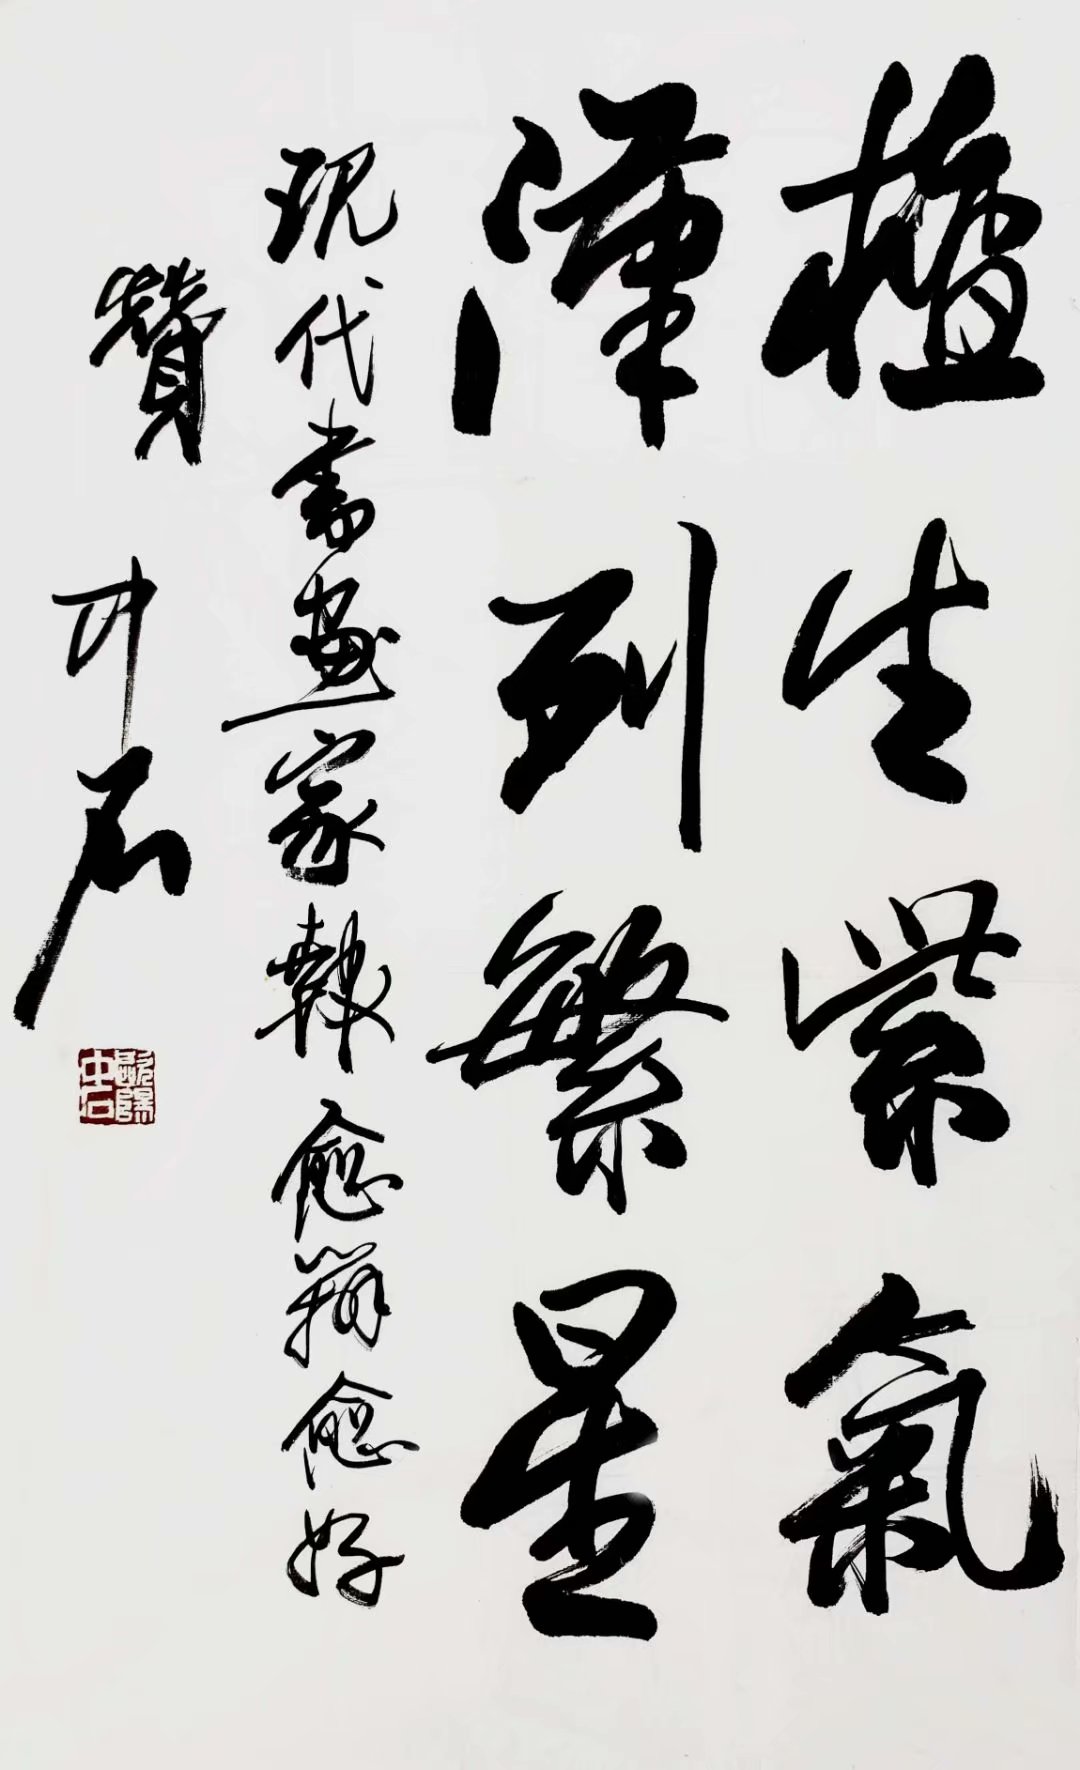 生紫氣
漢列繁星
现代書畫家報 愈辦愈好
贊
中石
歐陽中石